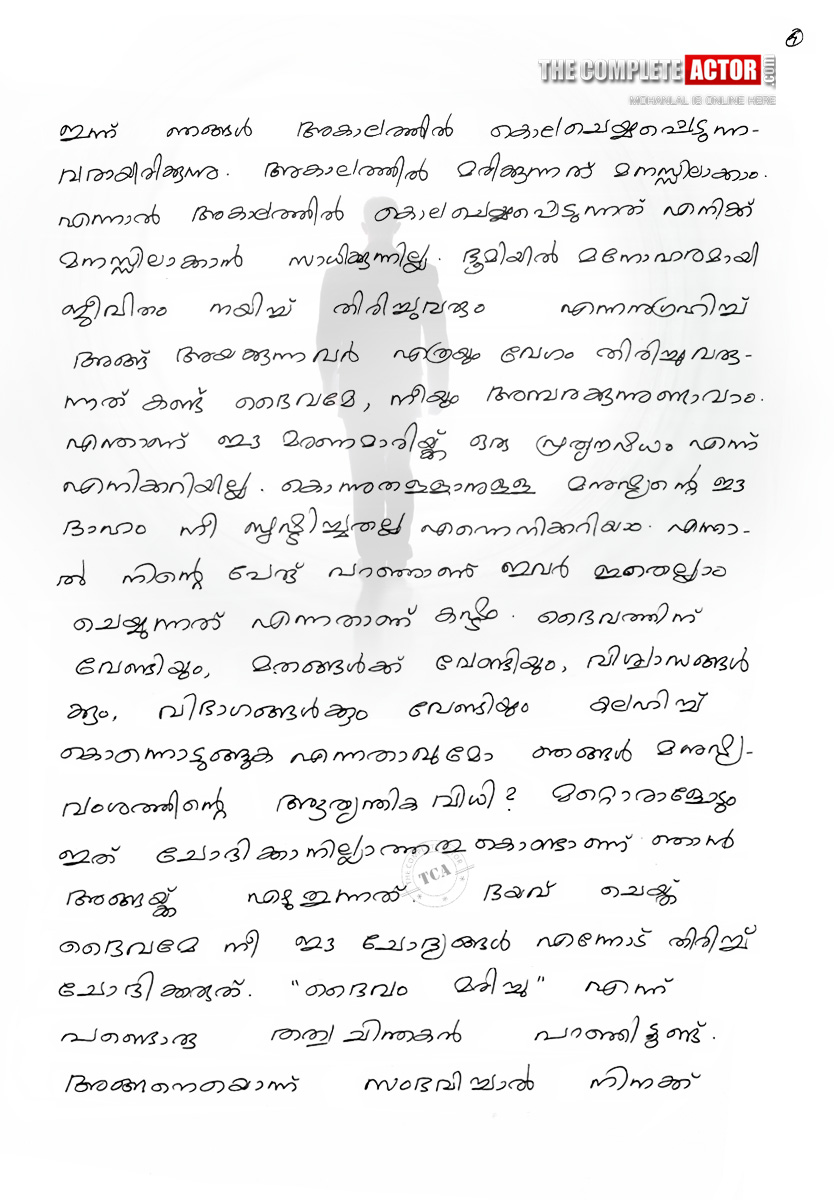 5
THE COMPLETE ACTOR .com
MOHANLAL IS ONLINE HERE
ഇന്ന് ഞങ്ങൾ അകാലത്തിൽ കൊലചെയ്യപ്പെടുന്ന-
വരായിരിക്കുന്നു. അകാലത്തിൽ മരിക്കുന്നത് മനസ്സിലാക്കാം.
എന്നാൽ അകാലത്തിൽ കൊലചെയ്യപ്പെടുന്നത് എനിക്ക്
മനസ്സിലാക്കാൻ സാധിക്കുന്നില്ല. ഭൂമിയിൽ മനോഹരമായി
ജീവിതം നയിച്ച് തിരിച്ചുവരൂം എന്നനുഗ്രഹിച്ച്
അങ്ങ് അയക്കുന്നവർ എത്രയും വേഗം തിരിച്ചുവരു-
ന്നത് കണ്ട് ദൈവമേ, നീയും അമ്പരക്കുന്നുണ്ടാവാം.
എന്താണ് ഈ മരണമാരിയ്ക്ക് ഒരു പ്രത്യൗഷധം എന്ന്
എനിക്കറിയില്ല. കൊന്നുതള്ളാനുള്ള മനുഷ്യന്റെ ഈ
ദാഹം നീ സൃഷ്ടിച്ചതല്ല എന്നെനിക്കറിയാം. എന്നാ-
ൽ നിന്റെ പേര് പറഞ്ഞാണ് ഇവർ ഇതെല്ലാം
ചെയ്യുന്നത് എന്നതാണ് കഷ്ടം. ദൈവത്തിന്
വേണ്ടിയും, മതങ്ങൾക്ക് വേണ്ടിയും, വിശ്വാസങ്ങൾ
ക്കും, വിഭാഗങ്ങൾക്കും വേണ്ടിയും കലഹിച്ച്
കൊന്നൊടുങ്ങുക എന്നതാവുമോ ഞങ്ങൾ മനുഷ്യ-
വംശത്തിന്റെ ആത്യന്തിക വിധി? മറ്റൊരാളോടും
ഇത് ചോദിക്കാനില്ലാത്തതു കൊണ്ടാണ് ഞാൻ
അങ്ങയ്ക്ക് എഴുതുന്നത്. ദയവ് ചെയ്ത്
ദൈവമേ നീ ഈ ചോദ്യങ്ങൾ എന്നോട് തിരിച്ച്
ചോദിക്കരുത്. "ദൈവം മരിച്ചു" എന്ന്
പണ്ടൊരു തത്വചിന്തകൻ പറഞ്ഞിട്ടുണ്ട്.
അങ്ങനെയൊന്ന് സംഭവിച്ചാൽ നിനക്ക്
TCA